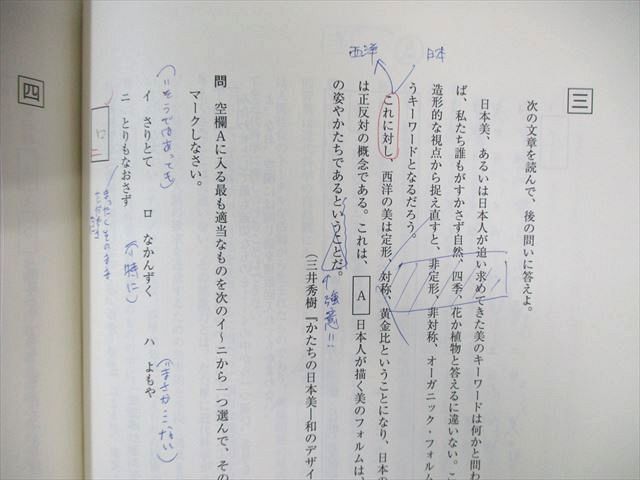 三
次の文章を読んで、後の問いに答えよ。
日本美、あるいは日本人が追い求めてきた美のキーワードは何かと問わ
ば、私たち誰もがすかさず自然、四季、花か植物と答えるに違いない。こ
造形的な視点から捉え直すと、非定形、非対称、オーガニック・フォルム
うキーワードとなるだろう。
日本
西洋
これに対し、西洋の美は定形、対称、黄金比ということになり、日本の
は正反対の概念である。これは、 A 日本人が描く美のフォルムは、
の姿やかたちであるということだ。
強意!!
(三井秀樹『かたちの日本美―和のデザイ
問 空欄Aに入る最も適当なものを次のイ～ニから一つ選んで、その
マークしなさい。
イ さりとて ロ なかんずく ハ よもや
(いそうではあっても)
(特に)
(まさかこない)
ニ とりもなおさず
ロ
ニ
四